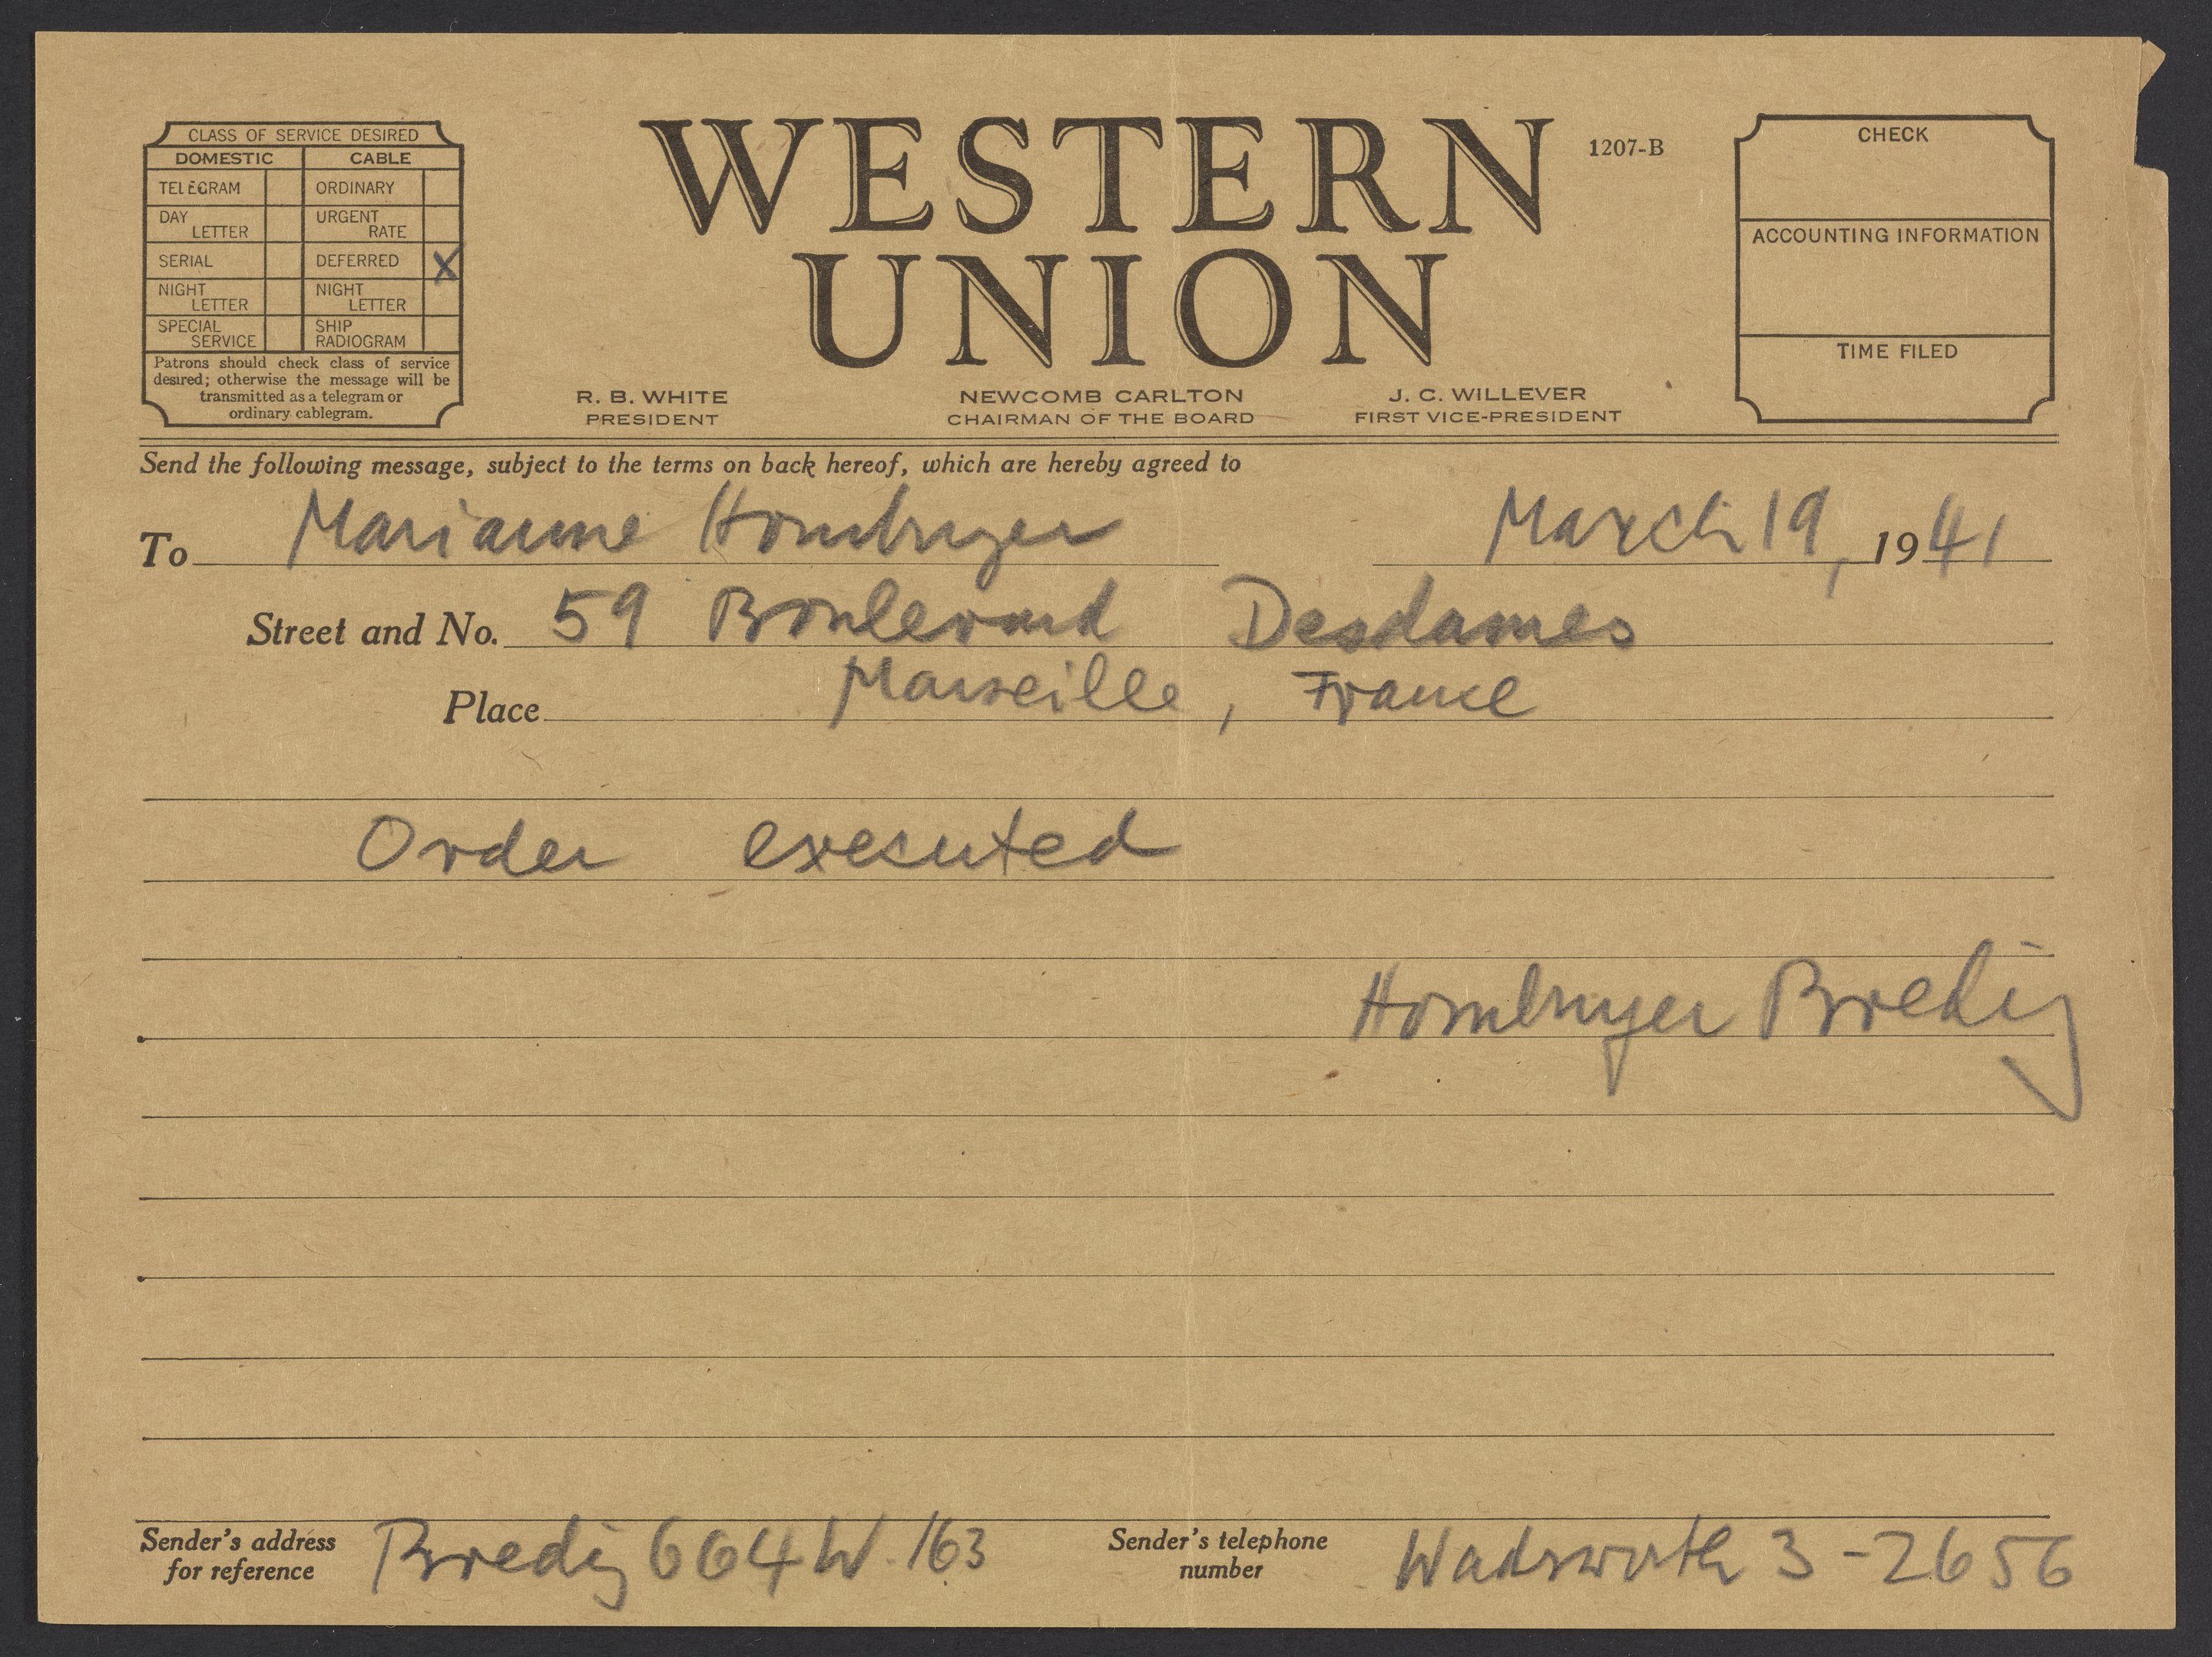 CLASS OF SERVICE DESIRED
DOMESTIC CABLE
TELEGRAM ORDINARY
DAY LETTER URGENT RATE
SERIAL DEFERRED X
NIGHT LETTER NIGHT LETTER
SPECIAL SERVICE SHIP RADIOGRAM
Patrons should check class of service
desired; otherwise the message will be
transmitted as a telegram or
ordinary cablegram.
WESTERN
UNION
1207-B
R. B. WHITE
PRESIDENT
NEWCOMB CARLTON
CHAIRMAN OF THE BOARD
J. C. WILLEVER
FIRST VICE-PRESIDENT
CHECK
ACCOUNTING INFORMATION
TIME FILED
Send the following message, subject to the terms on back hereof, which are hereby agreed to
To Marianne Homburger March 19, 1941
Street and No. 59 Boulevard Desdames
Place Marseille, France
Order executed
Homburger Bredig
Sender's address
for reference
Bredig 664 W. 163
Sender's telephone
number
Wadsworth 3-2656